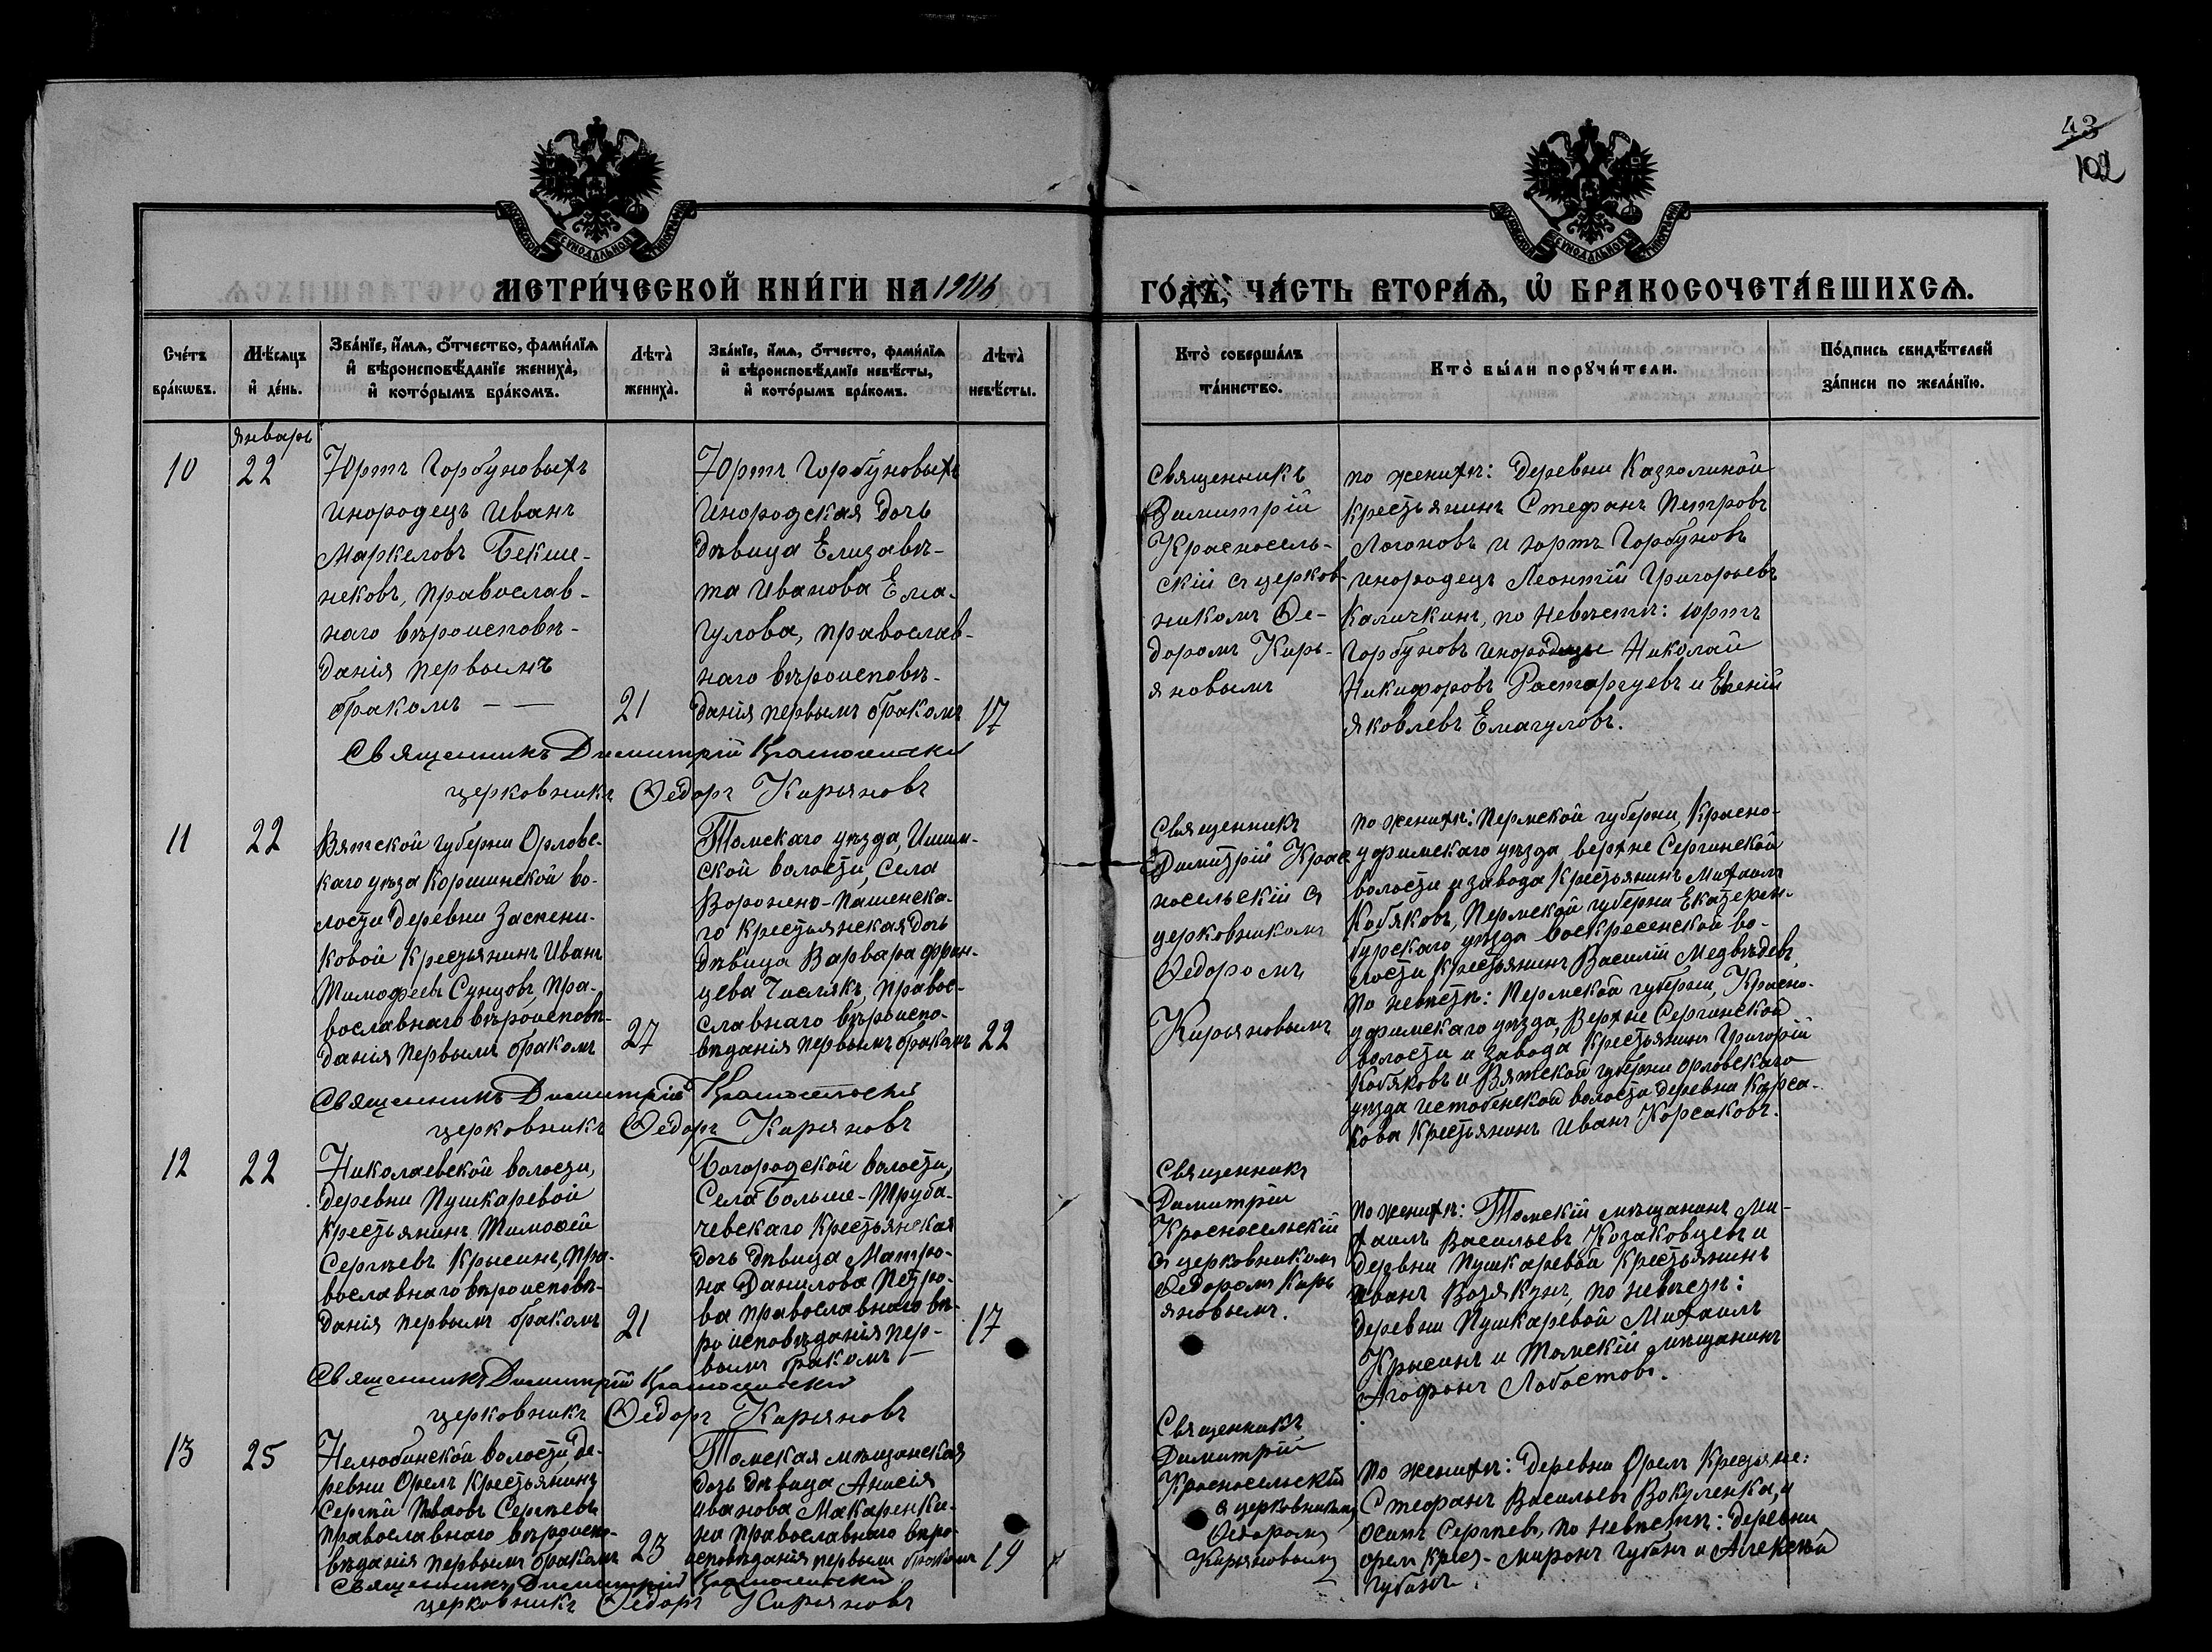 43
102
МОСКОВСКОЙ СѴНОДАЛЬНОЙ ТИПОГРАФІИ
МОСКОВСКОЙ СѴНОДАЛЬНОЙ ТИПОГРАФІИ
МЕТРИ́ЧЕСКОЙ КНИ́ГИ НА 1906
ГО́ДЪ, ЧА́СТЬ ВТОРА́Ѧ, Ѡ҆ БРАКОСОЧЕТА́ВШИХСѦ.
Сче́тъ бра́кѡвъ.
Мѣ́сяцъ и҆ де́нь.
Зва́нїе, и҆́мѧ, ѻ҆́тчество, фами́лїѧ
и҆ вѣроисповѣ́данїе жениха̀,
и҆ кото́рымъ бра́комъ.
Лѣта̀ жениха̀.
Зва́нїе, и҆́мѧ, ѻ҆́тчесто, фами́лїѧ
и҆ вѣроисповѣ́данїе невѣ́сты,
и҆ кото́рымъ бра́комъ.
Лѣта̀ невѣ́сты.
Кто̀ соверша́лъ
та́инство.
Кто̀ бы́ли порꙋчи́тели.
По́дпись свидѣ́телей
за́писи по жела́нїю.
январь
10
22
Юртъ Горбуновыхъ
инородецъ Иванъ
Маркеловъ Бекше-
нековъ, православ-
наго вѣроисповѣ-
данія первымъ
бракомъ — —
21
Юртъ Горбуновыхъ
инородская дочь
дѣвица Елизаве-
та Иванова Ема-
гулова, православ-
наго вѣроисповѣ-
данія первымъ бракомъ
17
Священникъ
Димитрій
Красносель-
скій съ церков-
никомъ Ѳе-
доромъ Кирь-
яновымъ
по женихѣ: деревни Казюлиной
крестьянинъ Стефанъ Петровъ
Логоновъ и юртъ Горбуновъ
инородецъ Леонтій Григорьевъ
Каличкинъ, по невѣстѣ: юртъ
Горбуновъ инородцы Николай
Никифоровъ Расторгуевъ и Евгеній
Яковлевъ Емагуловъ.
Священникъ Димитрій Красносельскій
церковникъ Ѳедоръ Кирьяновъ
11
22
Вятской губерни Орловс-
каго уѣзда Коршинской во-
лости деревни Заспени-
ковой крестьянинъ Иванъ
Тимофеевъ Сунцовъ, пра-
вославнаго вѣроисповѣ-
данія первымъ бракомъ
27
Томскаго уѣзда, Ишим-
ской волости, села
Воронено-Пашенска-
го крестьянская дочь
дѣвица Варвара Фран-
цева Тислякъ, правос-
славнаго вѣроиспо-
вѣданія первымъ бракомъ
22
Священникъ
Димитрій Крас-
носельскій съ
церковникомъ
Ѳедоромъ
Кирьяновымъ
по женихѣ: Пермской губерни, Красно-
уфимскаго уѣзда верхне Сергинской
волости и завода крестьянинъ Михаилъ
Кобяковъ, Пермской губерни Екатерен-
бурскаго уѣзда Воскресенской во-
лости крестьянинъ Василій Медвѣдевъ,
по невѣстѣ: Пермской губерни, Красно-
уфимскаго уѣзда, Верхне Сергинской
волости и завода крестьянинъ Григорій
Кобяковъ и Вятской губерни Орловскаго
уѣзда Истобенской волости деревни Корса-
кова крестьянинъ Иванъ Корсаковъ.
Священникъ Димитрій Красносельскій
церковникъ Ѳедоръ Кирьяновъ
12
22
Николаевской волости,
деревни Пушкаревой
крестьянинъ Тимоѳей
Сергѣевъ Крысинъ, пра-
вославнаго вѣроисповѣ-
данія первымъ бракомъ
21
Богородской волости,
села Больше-Труба-
чевскаго крестьянская
дочь дѣвица Матрю-
на Данилова Петро-
ва православнаго вѣ-
роисповѣданія пер-
вымъ бракомъ —
17
Священникъ
Димитрій
Красносельскій
съ церковникомъ
Ѳедоромъ Кирь
яновымъ.
по женихѣ: Томскій мѣщанинъ Ми-
хаилъ Васильевъ Козаковцевъ и
деревни Пушкаревой крестьянинъ
Иванъ Возякунъ, по невѣстѣ:
деревни Пушкаревой Михаилъ
Крысинъ и Томскій мѣщанинъ
Агафонъ Лобастовъ.
Священникъ Димитрій Красносельскій
церковникъ Ѳедоръ Кирьяновъ
13
25
Нелюбинской волости, де-
ревни Орелъ крестьянинъ
Сергѣй Сергѣевъ
православнаго вѣроиспо-
вѣданія первымъ бракомъ
23
Томская мѣщанская
дочь дѣвица Анисія
Иванова Макаренки-
на православнаго вѣро-
исповѣданія первымъ бракомъ
19
Священникъ
Димитрій
Красносельскій
съ церковникомъ
Ѳедоромъ
Кирьяновымъ
по женихѣ: деревни Орелъ крестьяне:
Стефанъ Васильевъ Вокуленка, и
Осипъ Сергѣевъ, по невѣстѣ: деревни
Орелъ крест- Миронъ Губинъ и Алексѣй
Губинъ.
Священникъ Димитрій Красносельскій
церковникъ Ѳедоръ Кирьяновъ